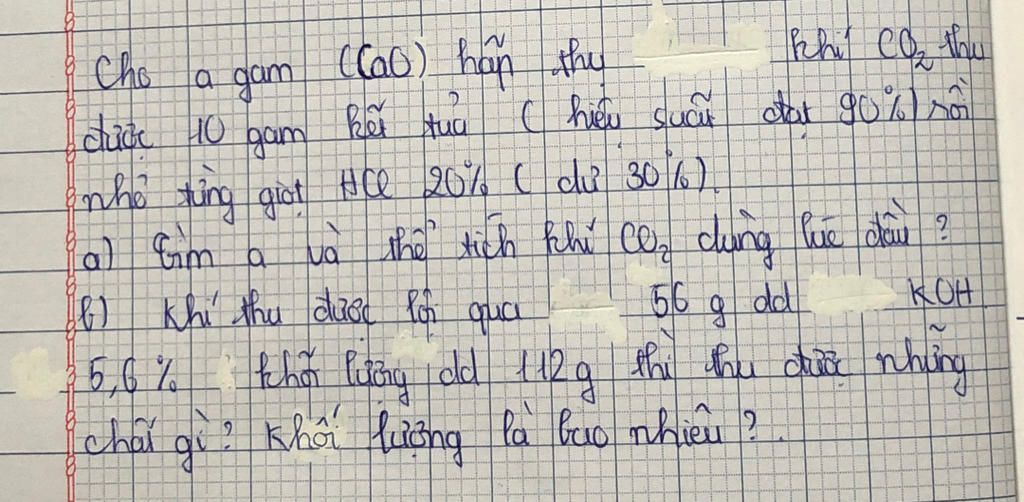 Cho a gam (CaO) hấp thụ khí CO₂ thu
được 10 gam kết tủa ( hiệu suất đạt 90%) rồi
nhỏ từng giọt HCl 20% ( dư 30%).
a) Tìm a và thể tích khí CO₂ dùng lúc đầu ?
b) Khí thu được lội qua 56 g dd KOH
5,6% khối lượng dd 112g thì thu được những
chất gì? Khối lượng là bao nhiêu ?.